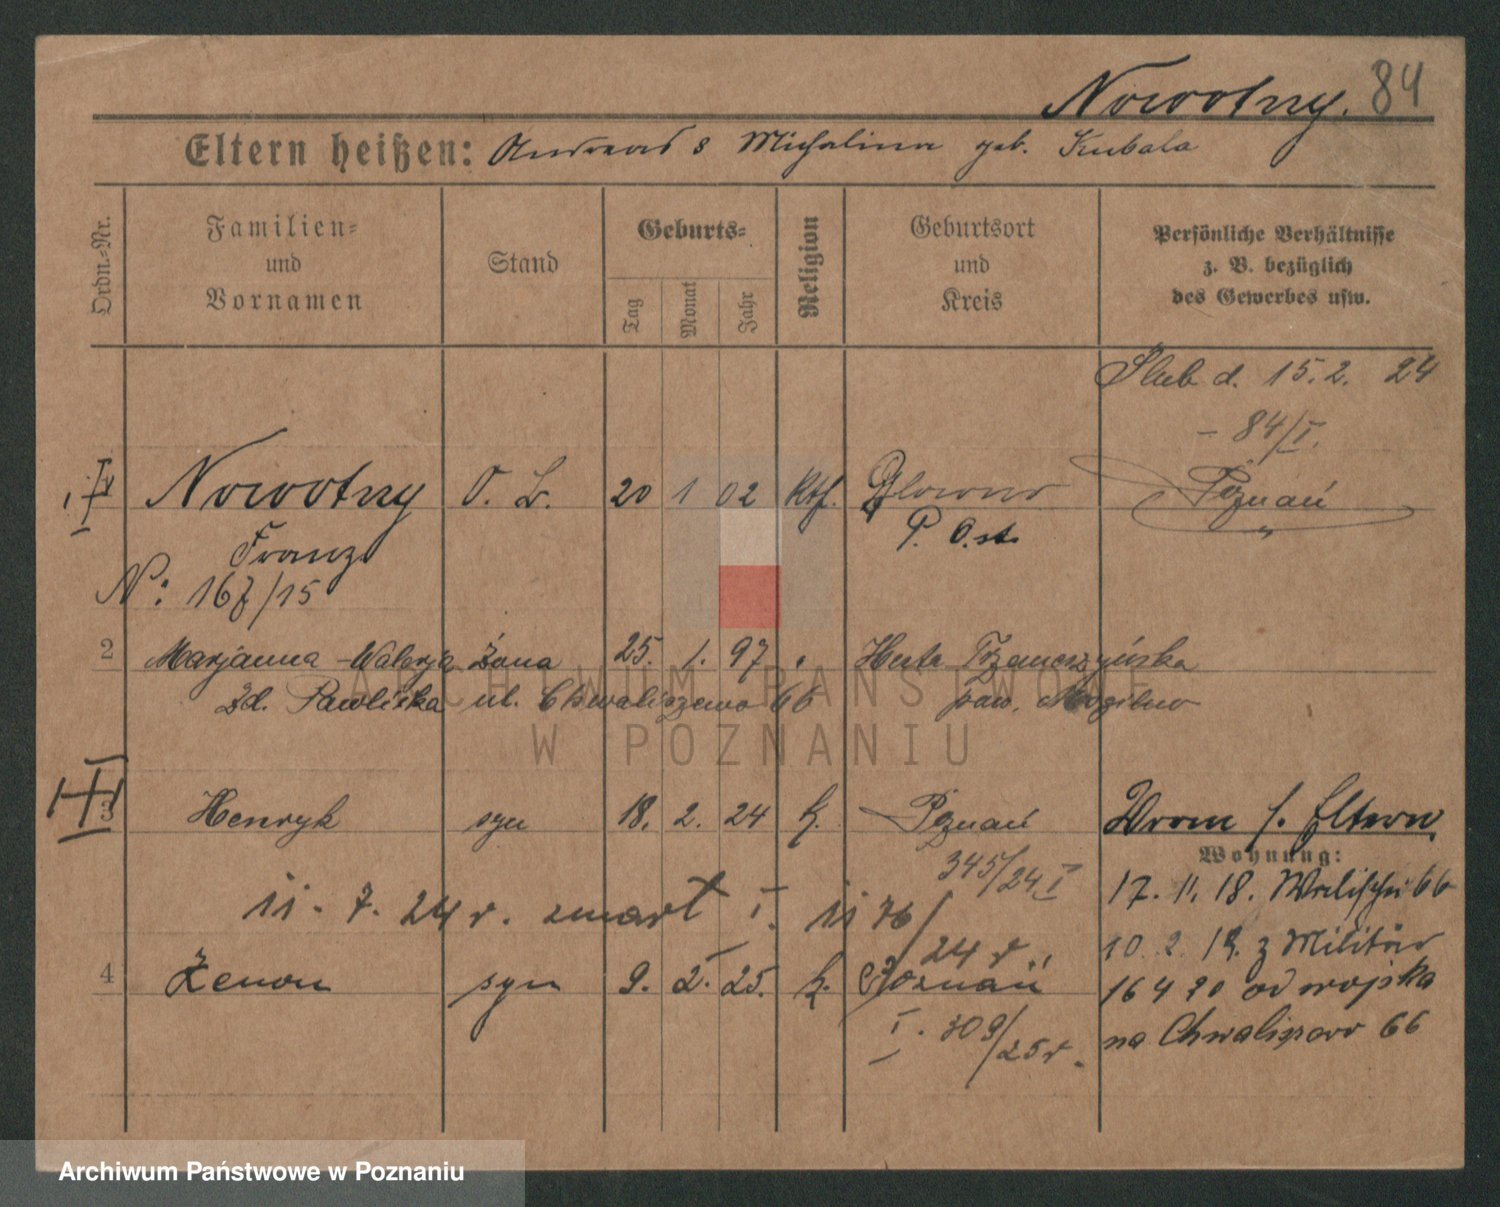 Nowotny. 84
Eltern heißen: Andreas & Michalina geb. Kubala
Ordn.-Nr.
Familien-
und
Vornamen
Stand
Geburts-
Tag
Monat
Jahr
Religion
Geburtsort
und
Kreis
Persönliche Verhältnisse
z. B. bezüglich
des Gewerbes usw.
Ślub d. 15. 2. 24
- 84/I.
Nowotny 20 1 02 Kth. Glowno Poznań
Franz P. Ost.
N: 167/15
2 Marjanna-Walerja żona 25. 1. 97 Huta
Zd. Pawlicka ul. Chwaliszewo 66 pow. Mogilno
3 Henryk syn 18. 2. 24 k. Poznań Wrom s. Eltern
345/24 I
Wohnung:
17. 11. 18. Wallischei 66
11. 7. 24 r. zmarł I. 1176/24 r.
10. 2. 19. z Militär
4 Zenon syn 9. 2. 25. k. Poznań
16 4 20 od wojska
I. 309/25 r.
na Chwaliszewo 66
ARCHIWUM PAŃSTWOWE
W POZNANIU
Archiwum Państwowe w Poznaniu